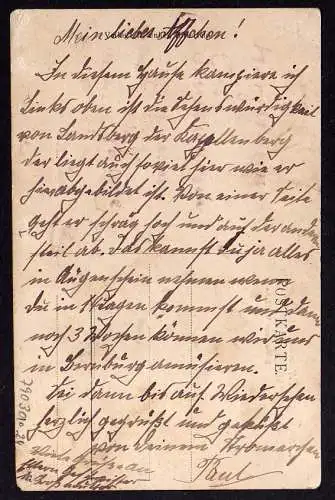 Mein liebes Äffchen!
In diesem Hause kampiere ich
Links oben ist die Sehenswürdigkeit
von Landsberg der Kapellenberg
der liegt auch soviel hier wie er
hier abgebildet ist. Von einer Seite
geht er schräg hoch und auf der andern
steil ab. Das kannst du ja alles
in Augenschein nehmen wenn
du in 8 Tagen kommst und dann
noch 3 Wochen können wir uns
in Bernburg amüsieren.
Bei dann bis auf Wiedersehen
herzlich gegrüßt und geküßt
von Deinem
Paul
Viele Grüße an
Eltern Geschwister
POSTKARTE